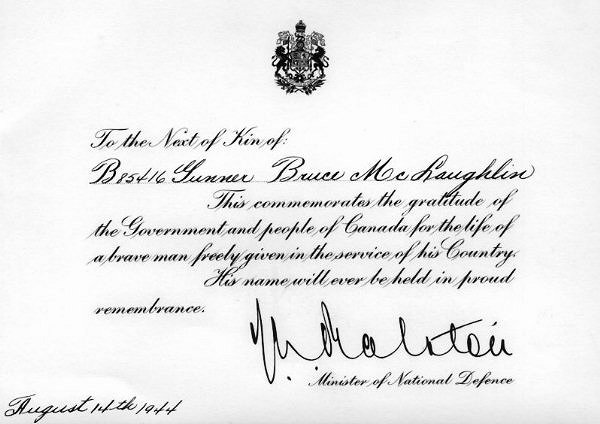 To the Next of Kin of:
B85416 Gunner Bruce McLaughlin
This commemorates the gratitude of
the Government and people of Canada for the life of
a brave man freely given in the service of his Country.
His name will ever be held in proud
remembrance.
Ralston
Minister of National Defence
August 14th 1944